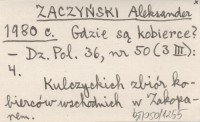 ZACZYŃSKI Aleksander
1980 c. Gdzie są kobierce?
– Dz. Pol. 36, nr 50 (3 III):
4.
Kulczyckich zbiór ko-
bierców wschodnich w Zakopa-
nem.